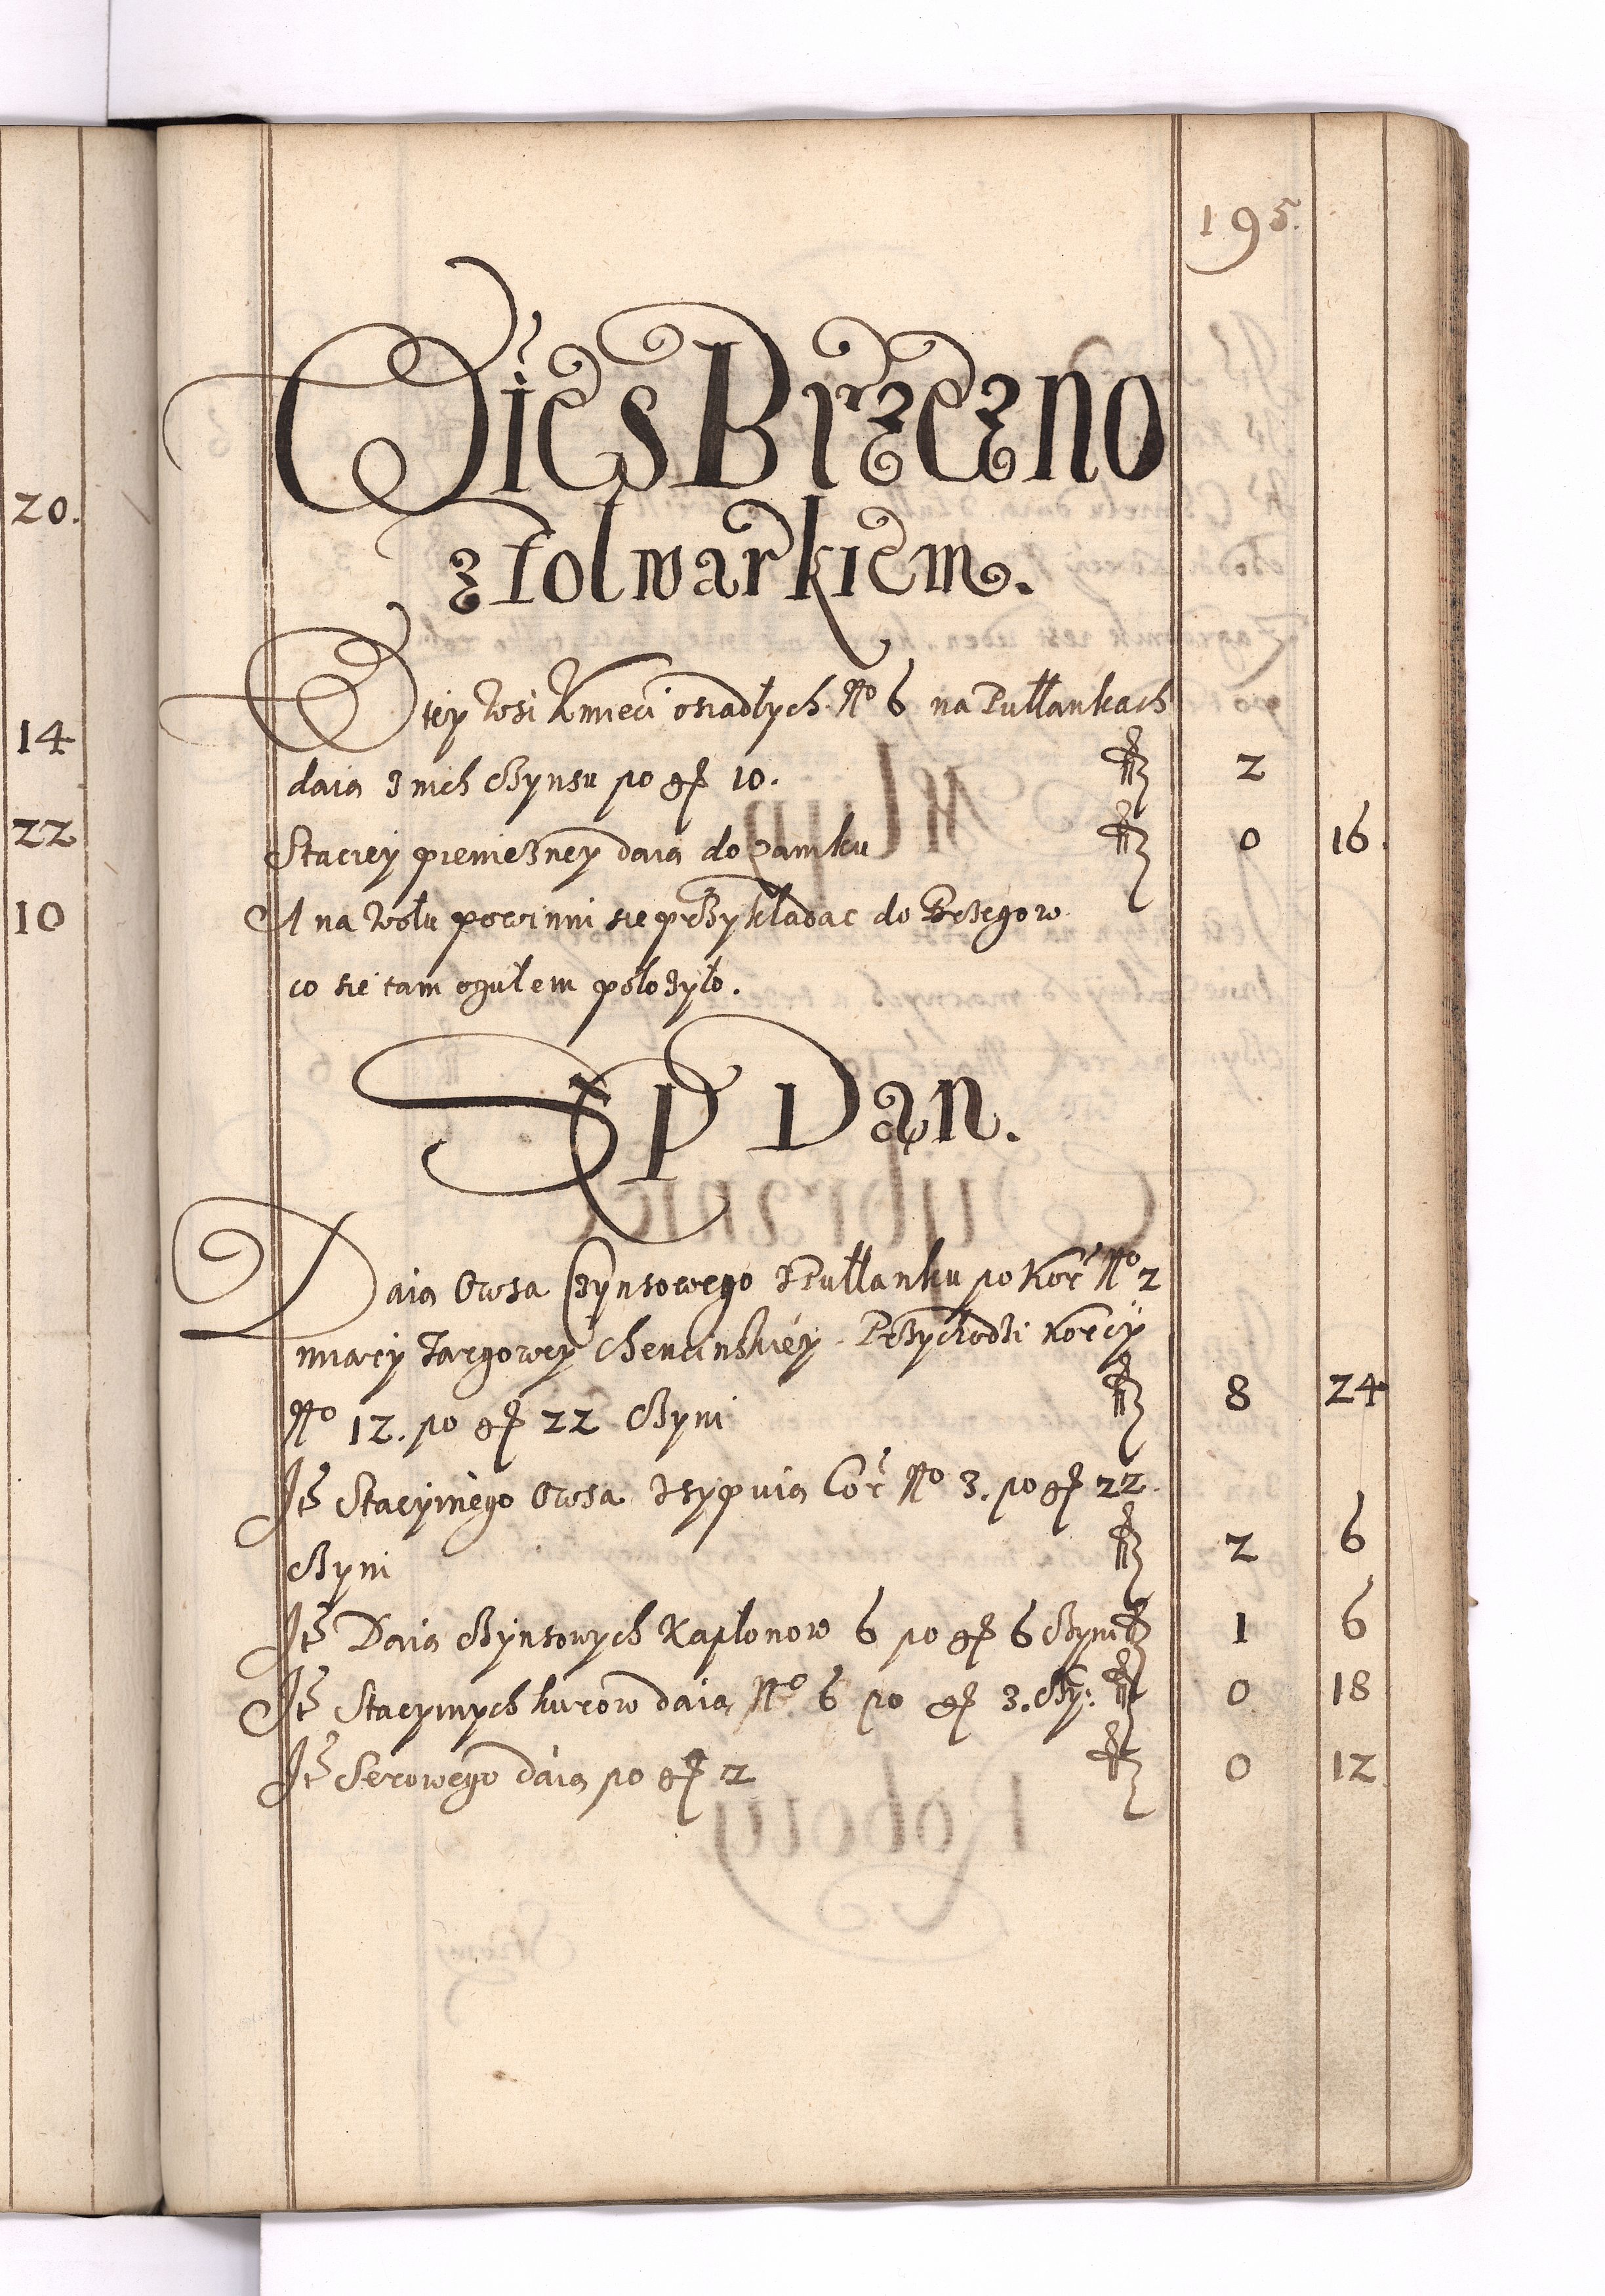 195.
Wies Brzeczno
z folwarkiem.
W tey Wsi Kmieci osiadłych No 6 na Pułłankach
daią z nich Czynsu po gr 10. fl 2
Staciey pieniezney daią do zamku fl 0 16.
A na Wołu powinni sie przykładac do Brzegow
co sie tam ogułem położyło.
SP Dan.
Daią Owsa Czynsowego z Pułłanku po Kor No 2
miary Targowey Chencinskiéy. Przychodzi Korcy
No 12. po gr 22 Czyni fl 8 24
Itē Stacyinego Owsa zsypuią Cor No 3. po gr 22.
Czyni fl 2 6
Itē Daią Czynsowych Kapłonow 6 po gr 6 Czyni fl 1 6
Itē Stacyinych kurow daią No 6 po gr 3. Czy: fl 0 18
Itē Serowego daią po gr 2 fl 0 12
20.
14
22
10